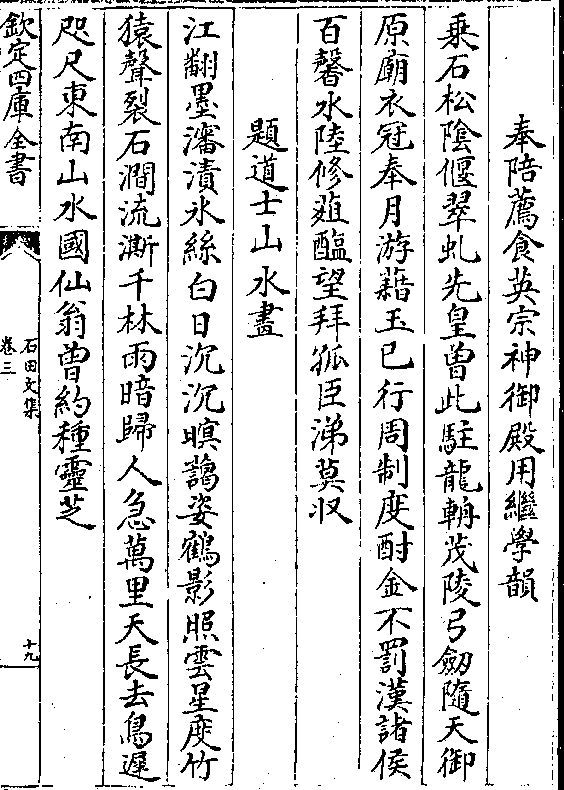 奉陪薦食英宗神御殿用繼學韻
乗石松陰偃翠虬先皇曽此駐龍輈茂陵弓劒隨天御
原廟衣冠奉月游藉玉已行周制度酎金不罰漢諸侯
百馨水陸修葅醢望拜孤臣涕莫収
題道士山水畫
江翻墨瀋漬氷絲白日沉沉暝鵠姿鶴影照雲星度竹
猿聲裂石澗流澌千林雨暗歸人急萬里天長去鳥遲
咫尺東南山水國仙翁曽約種靈芝
欽定四庫全書
石田文集
卷三
十九